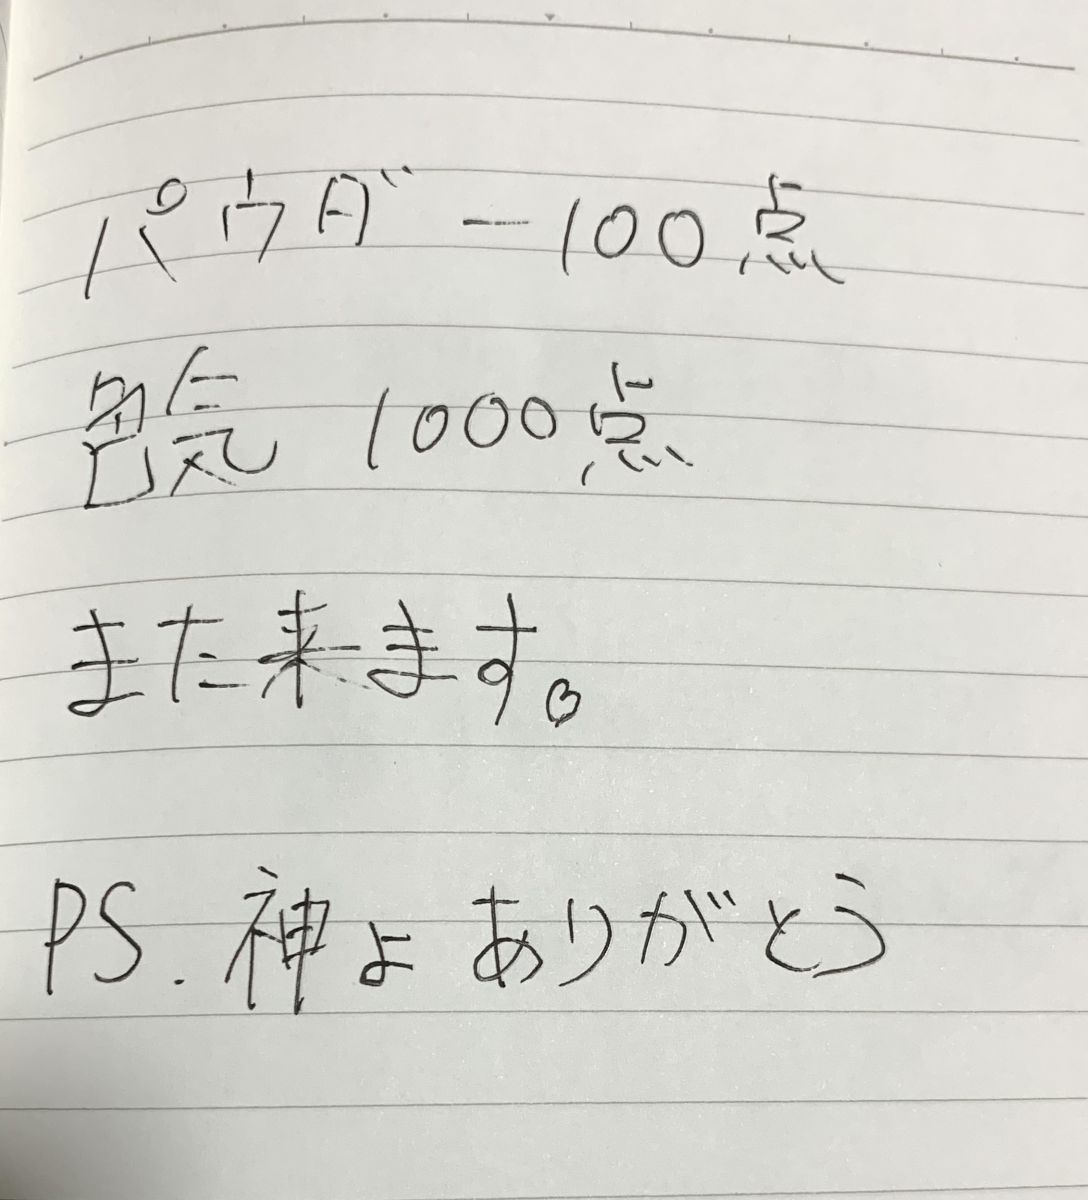 パウダー100点
色気 1000点
また来ます。
PS. 神よ ありがとう